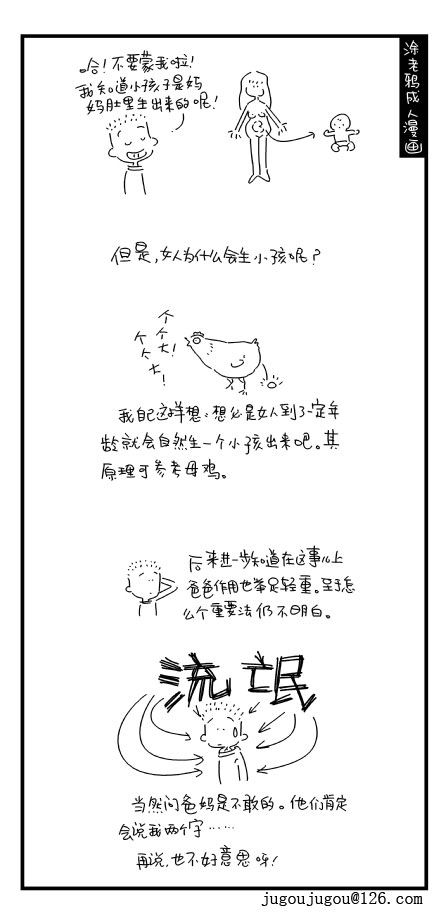 涂老鸦成人漫画
哈！不要蒙我啦！
我知道小孩子是妈
妈肚里生出来的呢！
但是，女人为什么会生小孩呢？
个
个
个
大！
个
大！
我自己这样想：想必是女人到了一定年
龄就会自然生一个小孩出来吧。其
原理可参考母鸡。
后来进一步知道在这事儿上
爸爸作用也举足轻重。至于怎
么个重要法仍不明白。
流氓
当然问爸妈是不敢的。他们肯定
会说我两个字……
再说，也不好意思呀！
jugoujugou@126.com